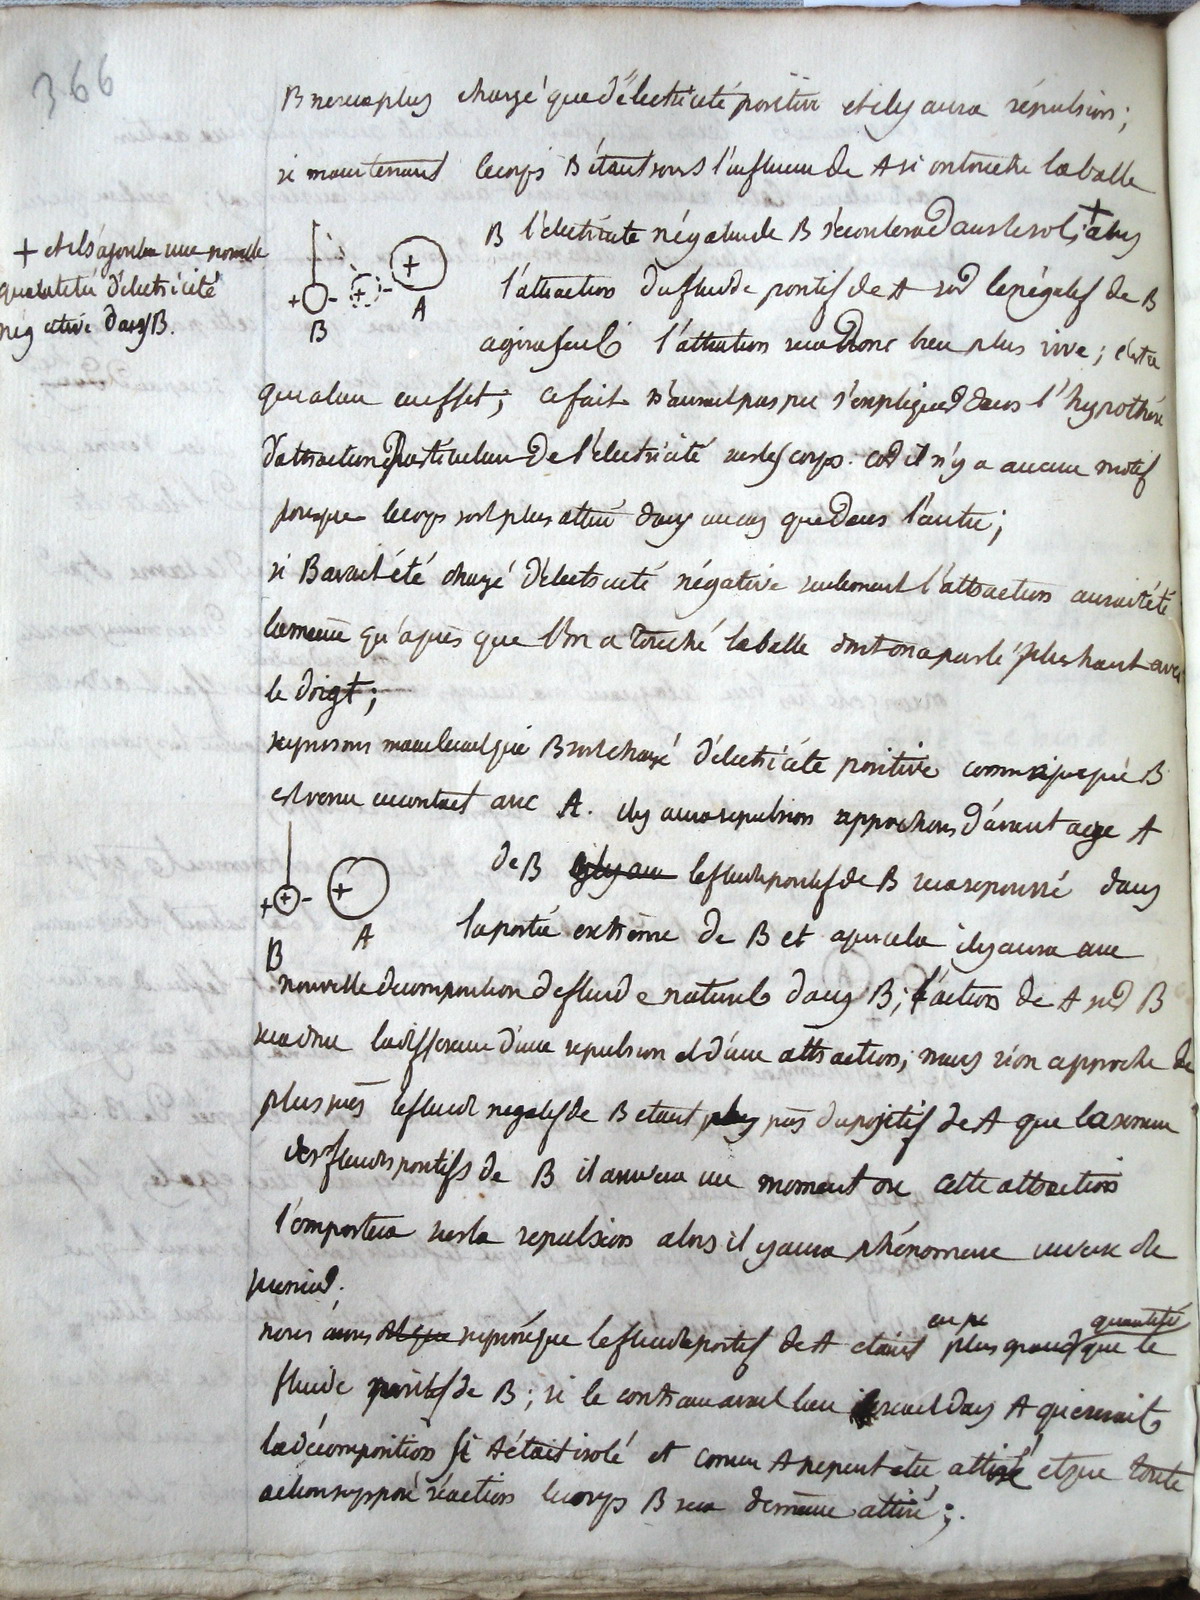 366
B ne sera plus chargé que d'électricité positive et il y aura répulsion;
si maintenant le corps B étant sous l'influence de A si on touche la balle
B l'électricité négative de B s'écoulera dans le sol; + alors
+ et il s'ajoutera une nouvelle
quantité d'électricité
négative dans B.
+ - + - +
B A
l'attraction du fluide positif de A sur le négatif de B
agira seul l'attraction sera donc bien plus vive; c'est ce
qui a lieu en effet; ce fait n'aurait pas pu s'expliquer dans l'hypothèse
d'attraction particulière de l'électricité sur les corps. car il n'y a aucun motif
pour que le corps soit plus attiré dans un cas que dans l'autre;
si B avait été chargé d'électricité négative seulement l'attraction aurait été
la même qu'après que l'on a touché la balle dont on a parlé plus haut avec
le doigt;
supposons maintenant que B soit chargé d'électricité positive comme puisque B
est venu en contact avec A. il y aura repulsion approchons d'avantage A
de B le fluide positif de B sera repoussé dans
+ + - +
B A
la partie extrême de B et après cela il y aura une
nouvelle decomposition de fluide naturel dans B; l'action de A sur B
sera donc la différence d'une repulsion et d'une attraction; mais si on approche de
plus près le fluide negatif de B etant plus près du positif de A que la somme
des fluides positifs de B il arrivera un moment où cette attraction
l'emportera sur la repulsion alors il y aura phénomène inverse du
premier.
nous avons supposé que le fluide positif de A etait plus grand quantité que le
fluide positif de B; si le contraire avait lieu ce serait dans A que serait
la décomposition si A était isolé et comme A ne peut être attiré et que toute
action suppose réaction le corps B sera de même attiré;.